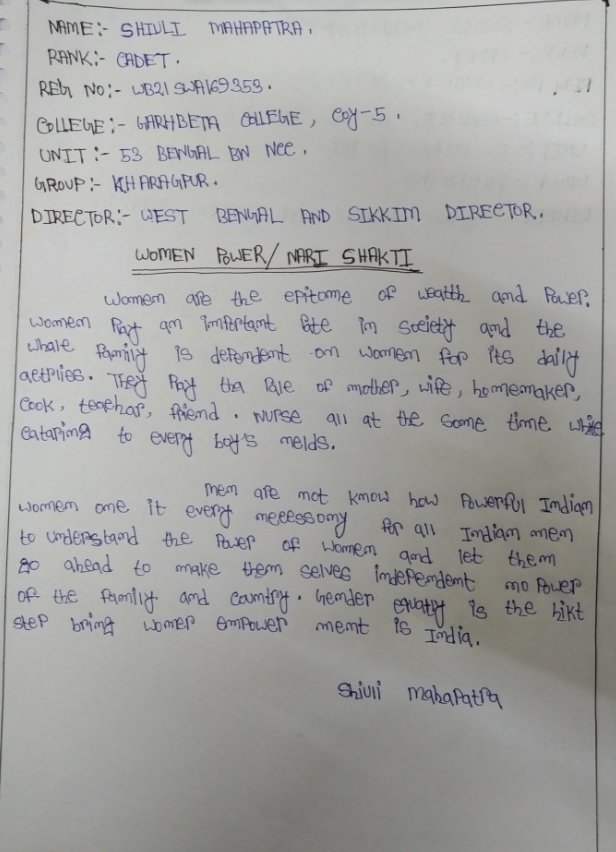 NAME:- SHIULI MAHAPATRA.
RANK:- CADET.
REG NO:- WB21SWA169353.
COLLEGE:- GARHBETA COLLEGE, COY-5.
UNIT:- 53 BENGAL BN NCC.
GROUP:- KHARAGPUR.
DIRECTOR:- WEST BENGAL AND SIKKIM DIRECTOR.
WOMEN POWER/ NARI SHAKTI
Women are the epitome of wealth and Power.
Women Pay an important Pate in society and the
whale Family is dependent on women for its daily
actplies. They Pay tha Pale of mother, wife, homemaker,
cook, teachar, friend. Nurse all at the some time while
cataring to every boy's melds.
Men are not know how Powerful Indian
women one it every meeessomy for all Indian men
to understand the Power of women and let them
go ahead to make them selves independent mo Power
of the family and country. Gender equaty is the hikt
step bring women empower ment is India.
Shiuli Mahapatra